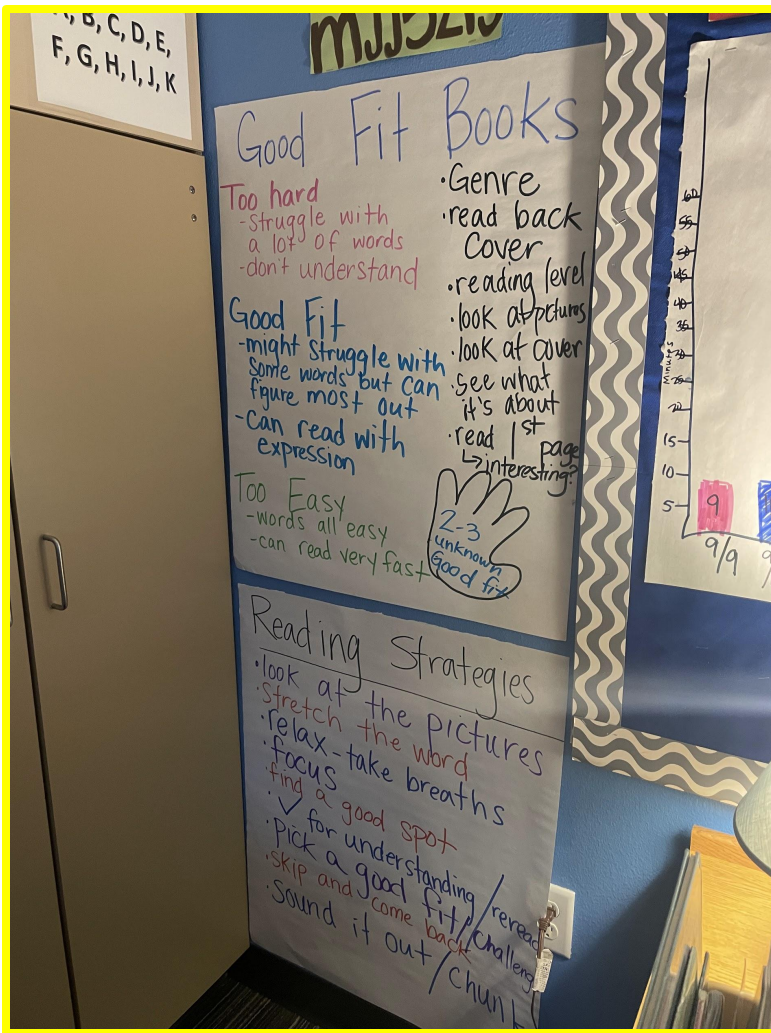 A, B, C, D, E,
F, G, H, I, J, K
Good Fit Books
Too hard
-Struggle with
a lot of words
-don't understand
Good Fit
-might struggle with
some words but can
figure most out
-Can read with
expression
Too Easy
-words all easy
-can read very fast
•Genre
•read back
Cover
•reading level
•look at pictures
•look at cover
•see what
it's about
•read 1st
page
↳interesting?
2-3
unknown
Good fit
Reading Strategies
•look at the pictures
•Stretch the word
•relax-take breaths
•focus
•find a good spot
•✓ for understanding/reread
•Pick a good fit/challenge
•skip and come back
•Sound it out/chunk
60
55
50
45
40
35
30
25
20
15
10
5
Minutes
9
9/9